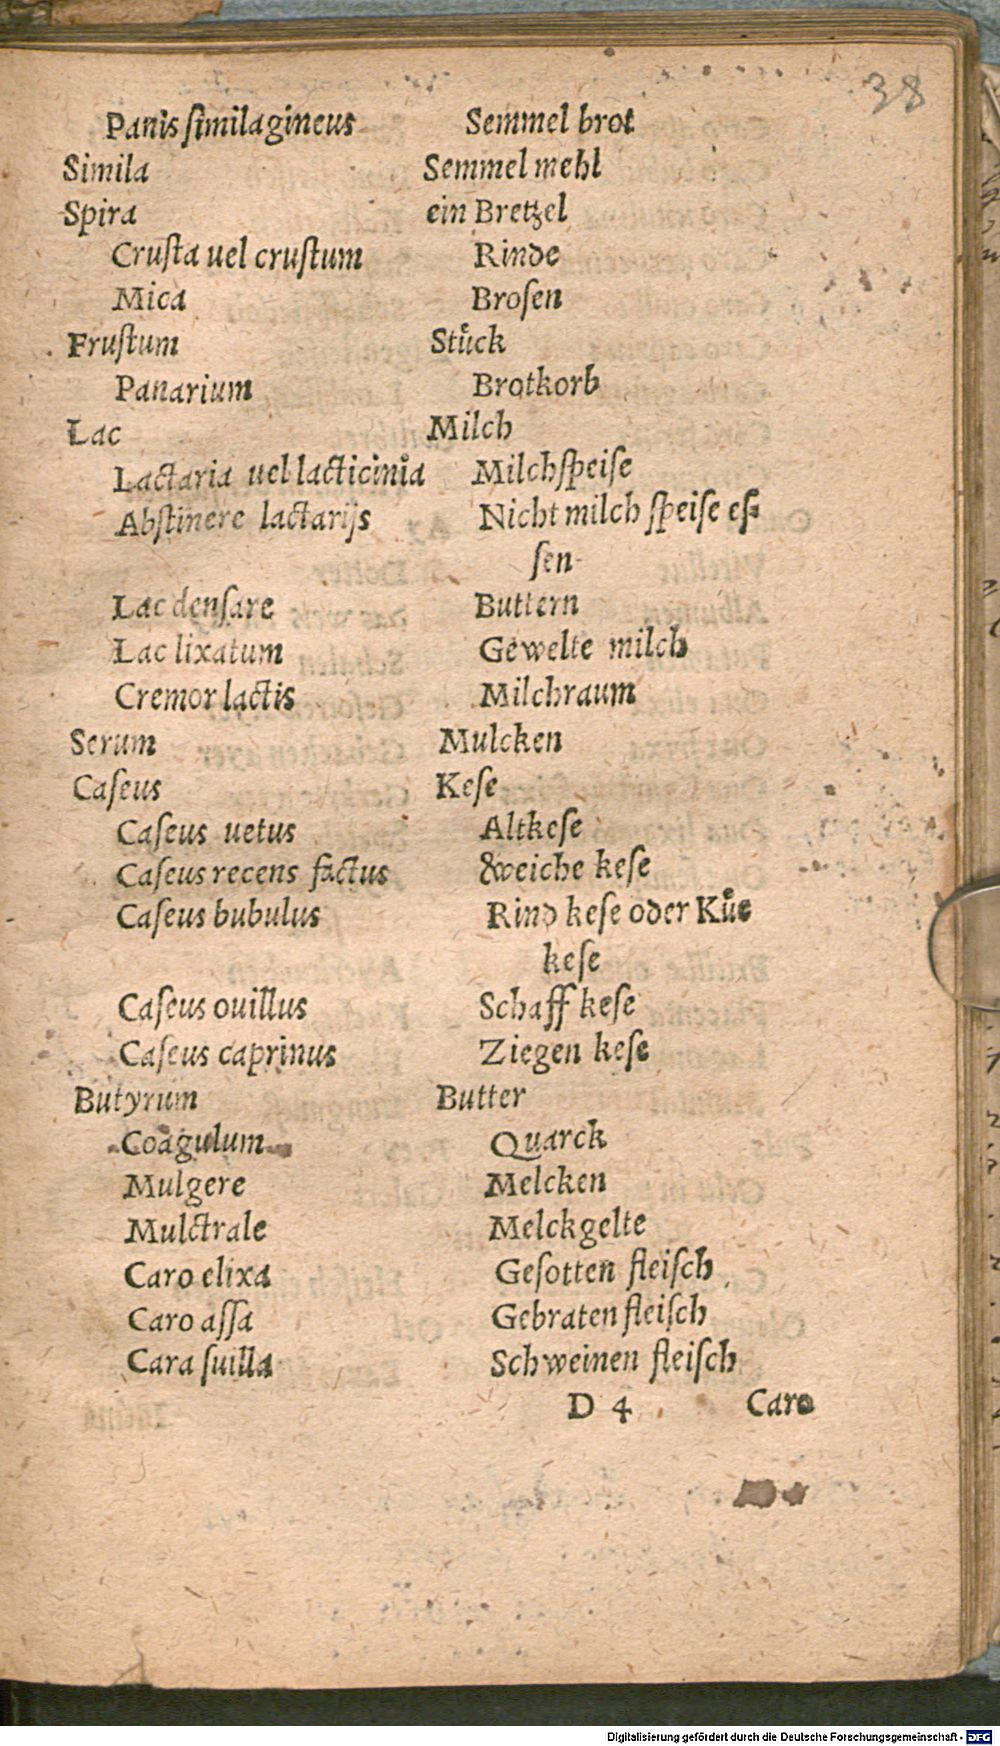 38
Panis ſimilagineus Semmel brot
Simila Semmel mehl
Spira ein Bretzel
Cruſta uel cruſtum Rinde
Mica Broſen
Fruſtum Stuͤck
Panarium Brotkorb
Lac Milch
Lactaria uel lacticinia Milchſpeiſe
Abſtinere lactarijs Nicht milch ſpeiſe eſ⸗
ſen
Lac denſare Buttern
Lac lixatum Gewelte milch
Cremor lactis Milchraum
Serum Mulcken
Caſeus Keſe
Caſeus uetus Altkeſe
Caſeus recens factus weiche keſe
Caſeus bubulus Rind keſe oder Kuͤe
keſe
Caſeus ouillus Schaff keſe
Caſeus caprinus Ziegen keſe
Butyrum Butter
Coagulum Quarck
Mulgere Melcken
Mulctrale Melckgelte
Caro elixa Geſotten fleiſch
Caro aſſa Gebraten fleiſch
Cara ſuilla Schweinen fleiſch
D 4 Caro
Digitalisierung gefördert durch die Deutsche Forschungsgemeinschaft - DFG